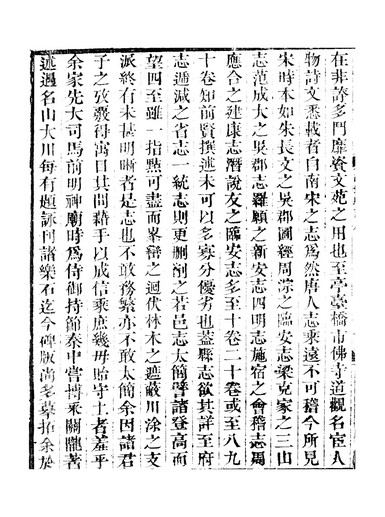 在非誇多鬥靡資文苑之用也至亭臺橋市佛寺道觀名宦人
物詩文悉載者自南宋之志爲然唐人志乘遠不可稽今所見
宋時本如朱長文之吳郡圖經周淙之臨安志梁克家之三山
志范成大之吳郡志羅願之新安志四明志施宿之會稽志周
應合之建康志潛說友之臨安志多至十卷二十卷或至八九
十卷知前賢撰述未可以多寡分優劣也蓋縣志欲其詳至府
志遞減之省志一統志則更刪削之若邑志太簡譬諸登高而
望四至雖一指點可盡而峯巒之迴伏林木之遮蔽川涂之支
派終有未甚明晰者是志也不敢務繁亦不敢太簡余因諸君
子之攷覈得寓目其間藉乎以成信乘庶幾毋貽守土者羞乎
余家先大司馬前明神廟時爲侍御持節秦中嘗博釆關隴著
述過名山大川每有題詠刋諸樂石迄今碑版尚多摹拓余於